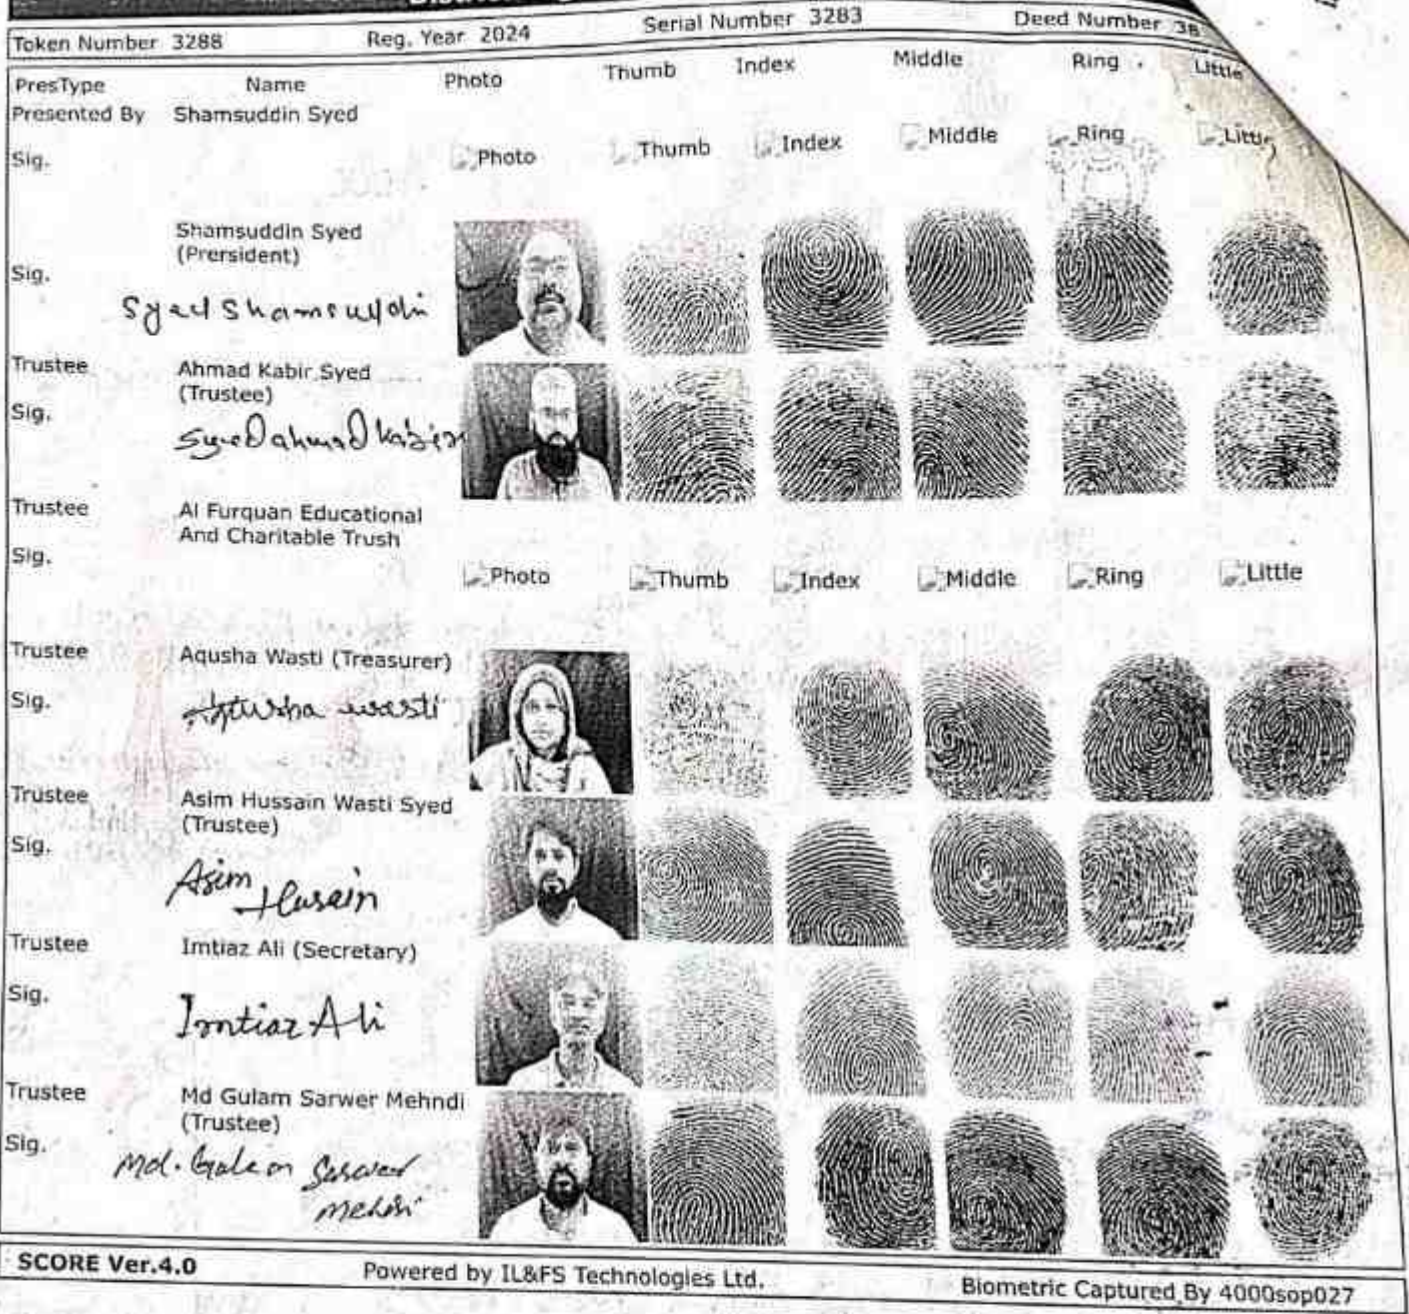 Token Number 3288 Reg. Year 2024 Serial Number 3283 Deed Number 38
PresType Name Photo Thumb Index Middle Ring Little
Presented By Shamsuddin Syed
Sig. Photo Thumb Index Middle Ring Little
Shamsuddin Syed
(Prersident)
Sig.
Syed Shamsuddin
Trustee Ahmad Kabir Syed
(Trustee)
Sig.
Syed ahmad kabir
Trustee Al Furquan Educational
And Charitable Trush
Sig.
Photo Thumb Index Middle Ring Little
Trustee Aqusha Wasti (Treasurer)
Sig.
Aqusha wasti
Trustee Asim Hussain Wasti Syed
(Trustee)
Sig.
Asim
Husain
Trustee Imtiaz Ali (Secretary)
Sig.
Imtiaz Ali
Trustee Md Gulam Sarwer Mehndi
(Trustee)
Sig.
Md. Gulam Sarwer
Mehdi
SCORE Ver.4.0 Powered by IL&FS Technologies Ltd. Biometric Captured By 4000sop027